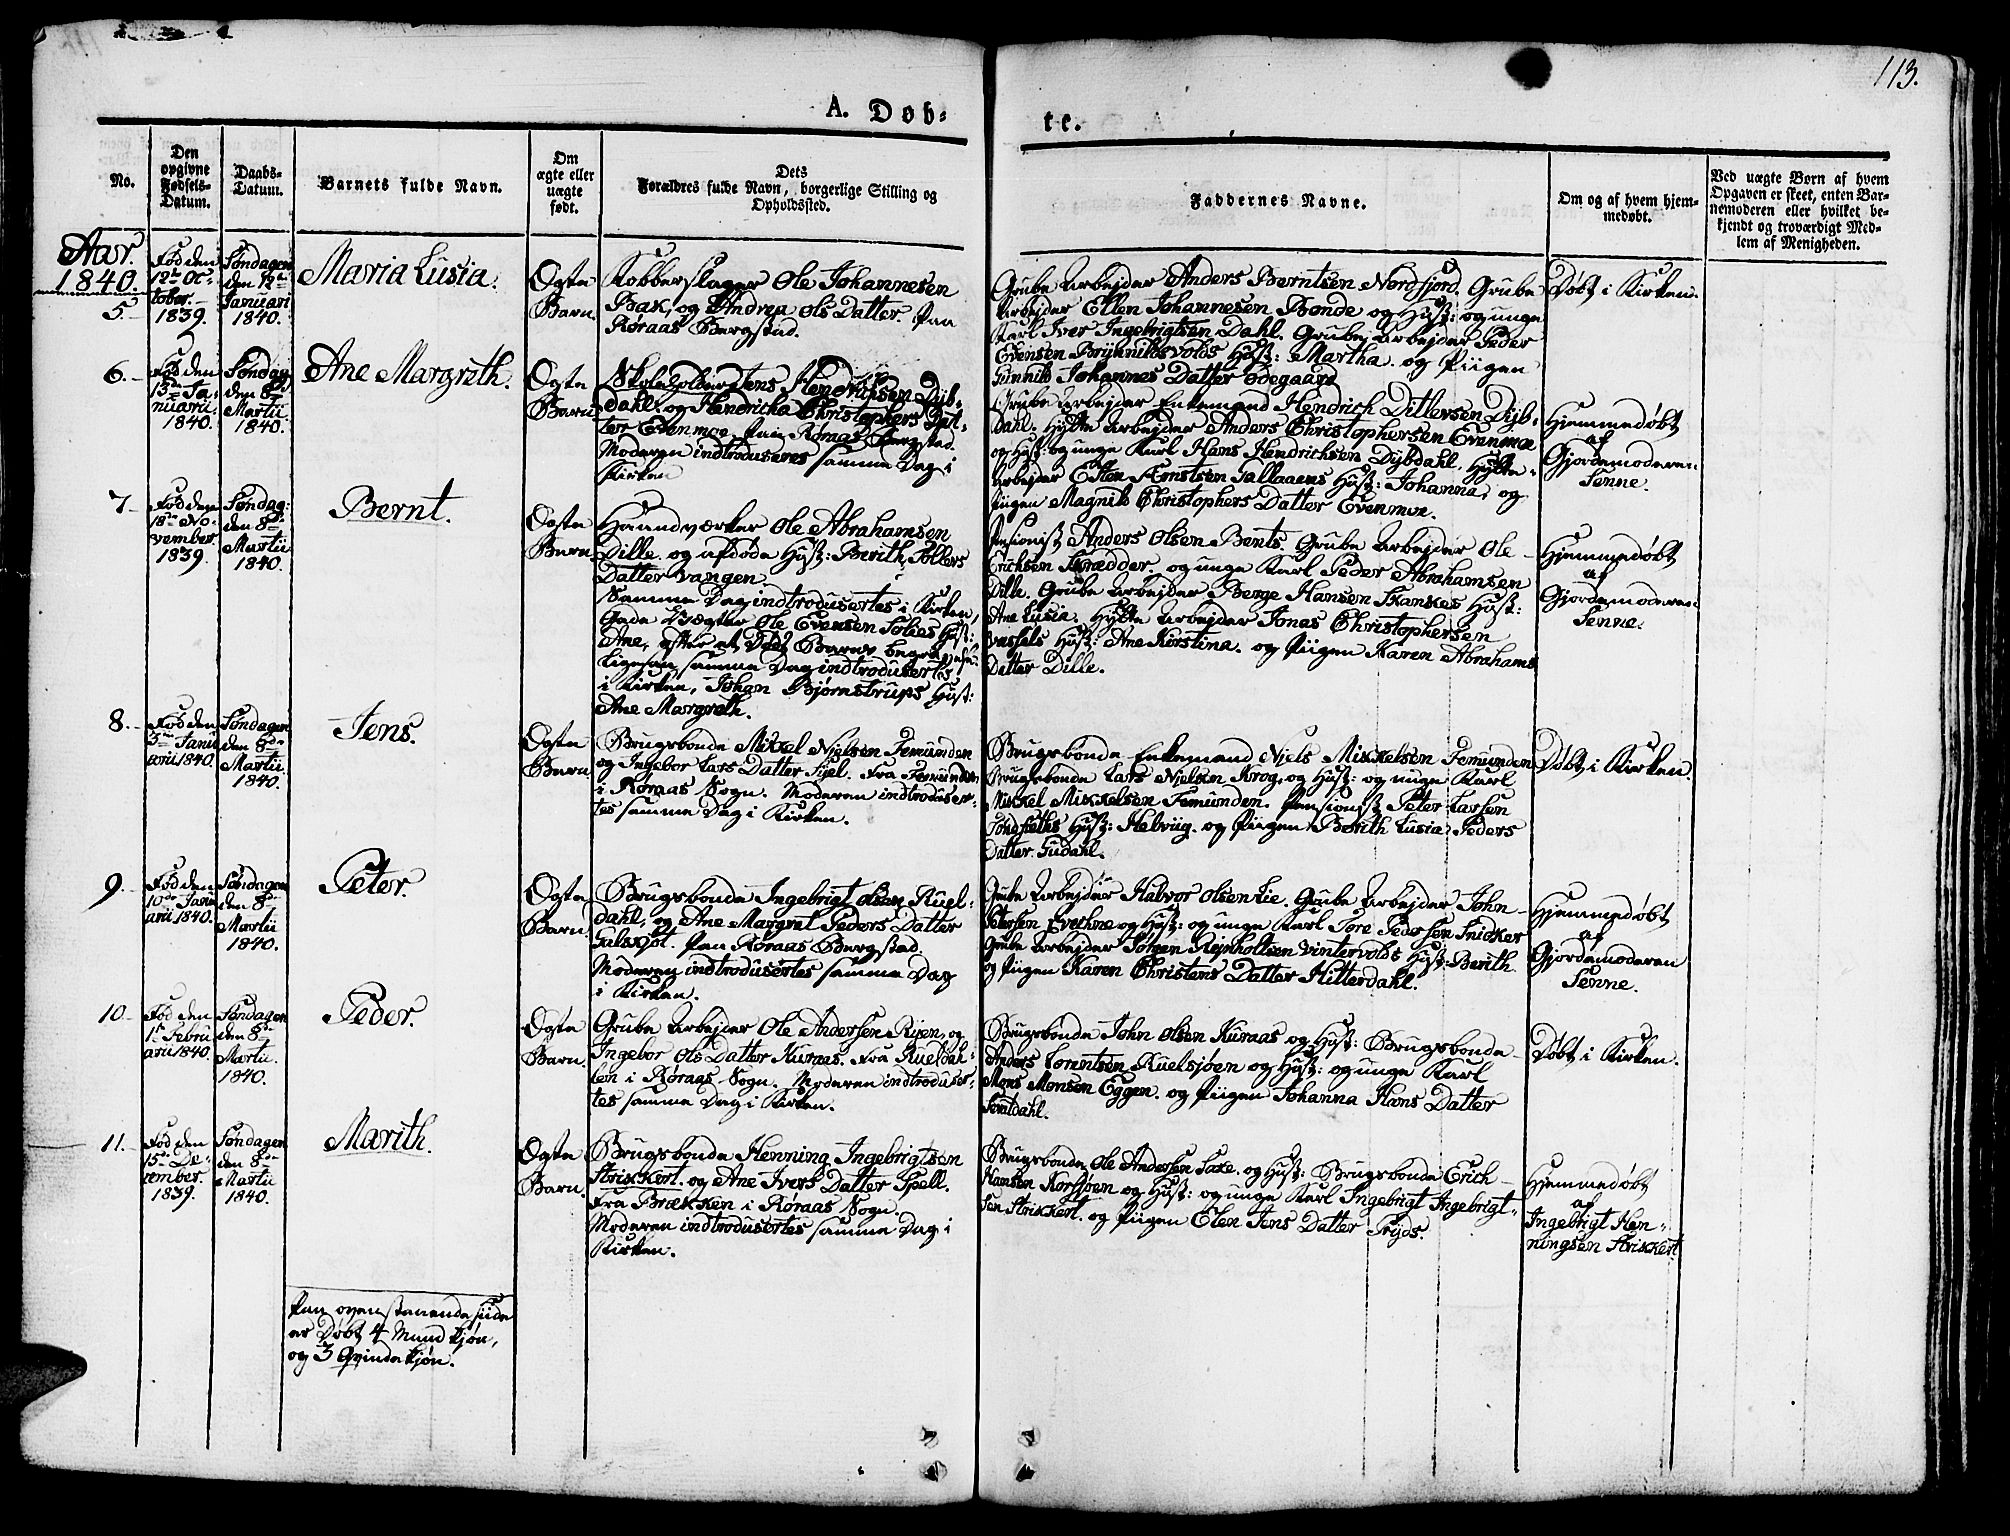 113.
A. Døb-
te.
No.
Den
opgivne
Fødsels-
Datum.
Daabs-
Datum.
Barnets fulde Navn.
Om
ægte eller
uægte
født.
Dets
Forældres fulde Navn, borgerlige Stilling og
Opholdssted.
Faddernes Navne.
Om og af hvem hjem-
medøbt.
Ved uægte Børn af hvem
Opgaven er skeet, enten Bar-
nemoderen eller hvilket be-
kjendt og troværdigt Med-
lem af Menigheden.
Aar.
1840.
5.
Fød den
12te Oc-
tober.
1839.
Søndagen
den 12te
Januari
1840.
Maria Lusia.
Ægte
Barn.
Kobberslager Ole Johannesen
Bak, og Andrea Ols Datter. Paa
Røraas Bergstad.
Grube Arbejder Anders Berntsen Nordfjord. Grube
Arbejder Ellen Johannesen Bonde og Hust: og unge
Karl Iver Ingebrigtsen Dahl. Grube Arbejder Peder
Evensen Brynnildsvolds Hust: Martha. og Piigen
Gunnild Johannes Datter Ødegaard
Døbt i Kirken.
6.
Fød den
13de Ja-
nuarii
1840.
Søndag
den 8de
Martii
1840.
Ane Margrith.
Ægte
Barn.
Skoleholder Jens Hendrichsen Dyb-
dahl. og Hendricha Christophers Dat-
ter Evenmoe. Paa Røraas Bergstad.
Moderen indtroduseres samme Dag i
Kirken
Grube Arbejder Enkemand Hendrich Ditlevsen Dyb-
dahl. Hytte Arbejder Anders Christophersen Evenmoe
og Hust: og unge Karl Hans Hendrichsen Dybdahl. Hytte-
Arbejder Esten Hust: Johanna, og
Piigen Magnild Christophers Datter Evenmoe.
Hjemmedøbt
af
Gjordemoderen
Senne.
7.
Fød den
18de No-
vember
1839.
Søndag:
den 8de
Martii
1840.
Bernt.
Ægte
Barn.
Haandværker Ole Abrahamsen
Dille. og afdøde Hust: Berith Pollers
Datter Vangen.
Samme Dag indtrodusertes i Kirken,
Ole Evensen Solies Hust:
Ane, efter at Barn
Ligesaa samme Dag indtrodusertes
i Kirken, Johan Bjørnstrups Hust:
Ane Margreth.
Pensionist Anders Olsen Bents. Grube Arbejder Ole
Erichsen Skrædder. og unge Karl Peder Abrahamsen
Dille. Grube Arbejder Berge Hansen Skankes Hust:
Ane Lusia. Hytte Arbejder Jonas Christophersen
Vassels Hust: Ane Kirstina. og Piigen Karen Abrahams
Datter Dille.
Hjemmedøbt
af
Gjordemoderen
Senne.
8.
Fød den
3die Janu
arii 1840.
Søndagen
den 8de
Martii
1840.
Jens.
Ægte
Barn.
Brugsbonde Mikkel Nielsen Femunden
og Ingebor Lars Datter Fra Femunden
i Røraas Sogn. Moderen indtroduser-
tes samme Dag i Kirken.
Brugsbonde Enkemand Niels Mikkelsen Femunden
Brugsbonde Lars Nielsen Krog, og Hust: og unge Karl
Mikkel Mikkelsen Femunden. Pensionist Peter Larsen
Hust: Helviig. og Piigen Berith Lusia Peders
Datter Gudahl.
Døbt i Kirken.
9.
Fød den
10de Janu
arii 1840.
Søndagen
den 8de
Martii
1840.
Peter.
Ægte
Barn.
Brugsbonde Ingebrigt Olsen Kuel-
dahl, og Ane Margret Peders Datter
Galskjøl. Paa Røraas Bergstad.
Moderen indtrodusertes samme Dag
i Kirken.
Grube Arbejder Halvor Olsen Lie. Grube Arbejder John
Petersen Evethne og Hust: og unge Karl Tore Pedersen Snidker
Grube Arbejder Søren Rejnholtsen Vintervolds Hust: Berith
og Piigen Karen Christens Datter Hitterdahl.
Hjemmedøbt
af
Gjordemoderen
Senne.
10.
Fød den
1st Febru
arii 1840.
Søndagen
den 8de
Martii.
1840.
Peder.
Ægte
Barn.
Grube Arbejder Ole Andersen Ryen, og
Ingebor Ols Datter Kuraas. Fra Kueldah-
len i Røraas Sogn. Moderen indtroduser-
tes samme Dag i Kirken.
Brugsbonde John Olsen Kuraas og Hust: Brugsbonde
Anders Lorentsen Kuelsjøen og Hust: og unge Karl
Mons Monsen Eggen. og Piigen Johanna Hans Datter
Døbt i Kirken.
11.
Fød den
15de De-
cember.
1839.
Søndagen
den 8de
Martii
1840.
Marith.
Ægte
Barn.
Brugsbonde Henning Ingebrigtsen
Strikkert. og Ane Ivers Datter Spell.
Fra Brækken i Røraas Sogn.
Moderen indtrodusertes samme Dag i
Kirken.
Brugsbonde Ole Andersen Saxe. og Hust: Brugsbonde Erich
Hansen Korssjøen og Hust: og unge Karl Ingebrigt Ingebrigt-
sen Strikkert. og Piigen Elen Jens Datter Tryds.
Hjemmedøbt
af
Ingebrigt Hen-
ningsen Strikkert
Paa ovenstaaende Siide
er Døbt 4 Mand kjøn,
og 3 Qvinde kjøn.